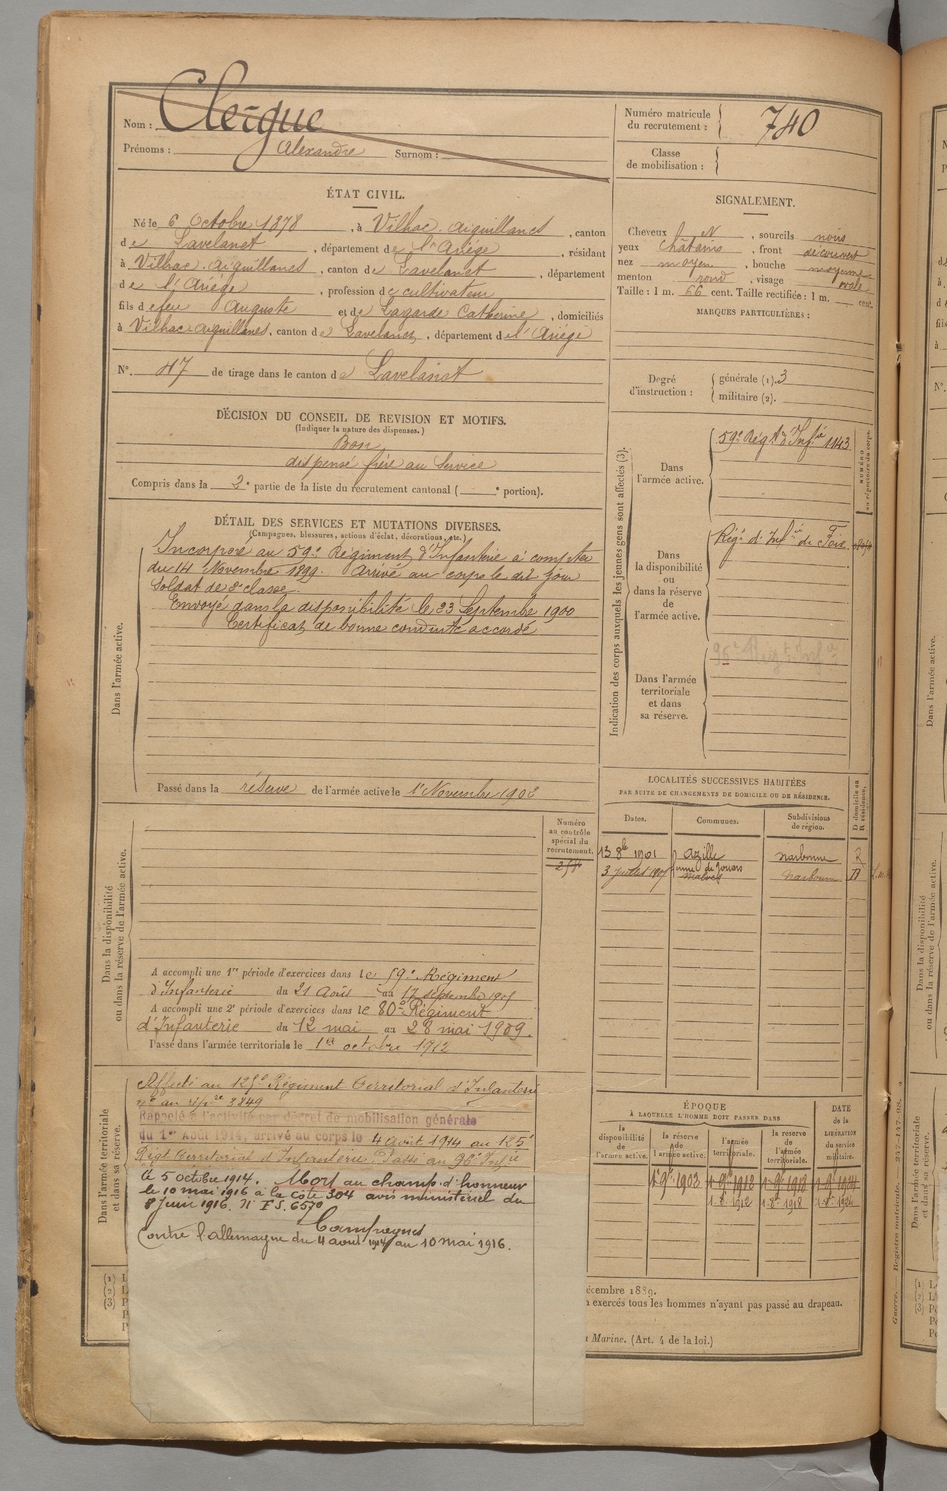 Nom : Clergue
Prénoms : Alexandre Surnom :
Numéro matricule du recrutement : 740
Classe de mobilisation :
ÉTAT CIVIL.
Né le 6 Octobre 1878, à Vilhac-Aiguillanes, canton
de Lavelanet, département de l'Ariège, résidant
à Vilhac-Aiguillanes, canton de Lavelanet, département
de l'Ariège, profession de cultivateur
fils de feu Auguste et de Lagarde Catherine, domiciliés
à Vilhac-Aiguillanes, canton de Lavelanet, département de l'Ariège
N° 47 de tirage dans le canton de Lavelanet
SIGNALEMENT.
Cheveux N, sourcils noirs
yeux châtains, front découvert
nez moyen, bouche moyenne
menton rond, visage ovale
Taille : 1 m. 66 cent. Taille rectifiée : 1 m. cent.
MARQUES PARTICULIÈRES :
Degré d'instruction : générale (1). 3
militaire (2).
DÉCISION DU CONSEIL DE REVISION ET MOTIFS.
(Indiquer la nature des dispenses.)
Bon
dispensé frère au service
Compris dans la 2e partie de la liste du recrutement cantonal ( e portion).
DÉTAIL DES SERVICES ET MUTATIONS DIVERSES.
(Campagnes, blessures, actions d'éclat, décorations, etc.)
Dans l'armée active.
Incorporé au 59e Régiment d'Infanterie à compter
du 14 Novembre 1899. Arrivé au corps le dit jour
soldat de 2e classe.
Envoyé dans la disponibilité le 23 Septembre 1900
Certificat de bonne conduite accordé
Passé dans la réserve de l'armée active le 1er Novembre 1902
Indication des corps auxquels les jeunes gens sont affectés (3).
Dans l'armée active. 59e Régt d'Infie 1143
Dans la disponibilité ou dans la réserve de l'armée active. Régt d'Infie de Foix
Dans l'armée territoriale et dans sa réserve.
LOCALITÉS SUCCESSIVES HABITÉES
PAR SUITE DE CHANGEMENTS DE DOMICILE OU DE RÉSIDENCE.
Dates. Communes. Subdivisions de région. D domicile ou R résidence.
13 8bre 1901 Azille Narbonne R
3 juillet 1907 Narbonne D
Dans la disponibilité ou dans la réserve de l'armée active.
Numéro au contrôle spécial du recrutement.
A accompli une 1re période d'exercices dans le 59e Régiment
d'Infanterie du 21 Août au 17 septembre 1905
A accompli une 2e période d'exercices dans le 80e Régiment
d'Infanterie du 12 mai au 28 mai 1909.
Passé dans l'armée territoriale le 1er octobre 1912
Dans l'armée territoriale et dans sa réserve.
Affecté au 125e Régiment Territorial d'Infanterie
3849
Rappelé à l'activité par décret de mobilisation générale
du 1er Août 1914, arrivé au corps le 4 août 1914 au 125e
Régt Territorial d'Infanterie Passé au 96e Infie
le 5 octobre 1914. Mort au champ d'honneur
le 10 mai 1916 à la côte 304 avis ministériel du
8 Juin 1916. N° F.S. 6570
Campagnes
Contre l'allemagne du 4 août 1914 au 10 mai 1916.
ÉPOQUE
À LAQUELLE L'HOMME DOIT PASSER DANS
la disponibilité de l'armée active. la réserve de l'armée active. l'armée territoriale. la réserve de l'armée territoriale. DATE de la LIBÉRATION du service militaire.
décembre 1889.
exercés tous les hommes n'ayant pas passé au drapeau.
Marine. (Art. 4 de la loi.)